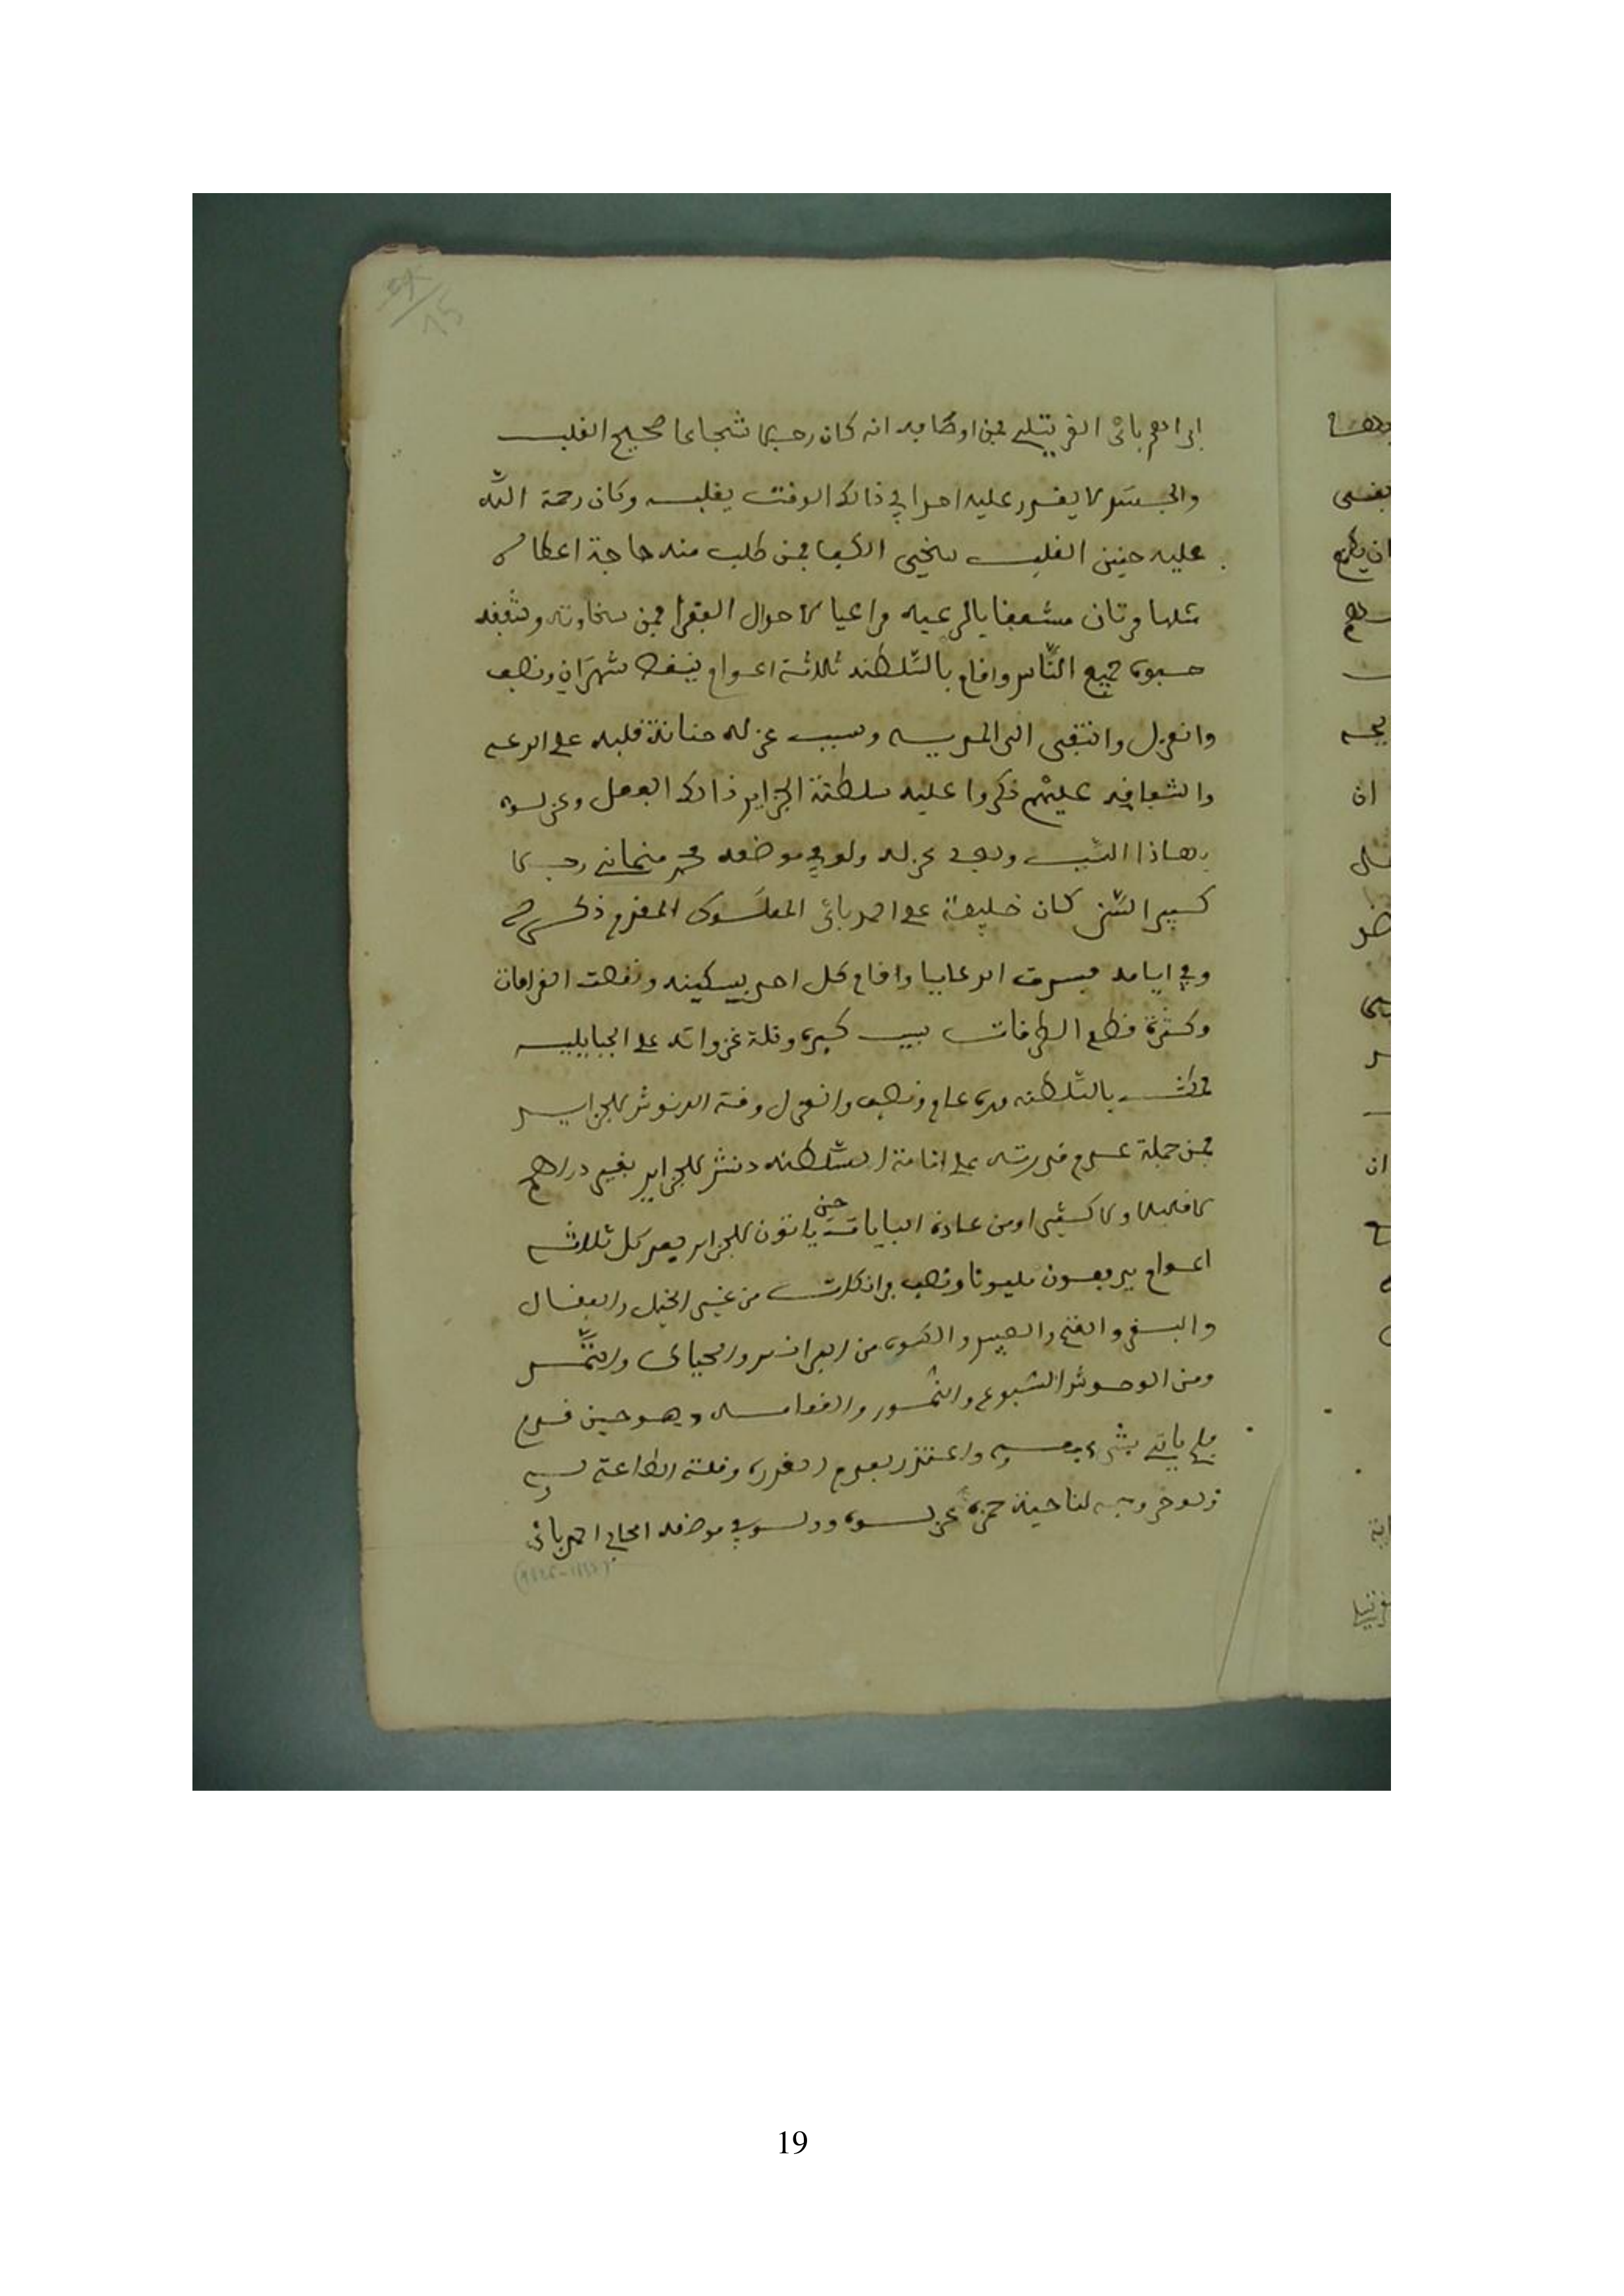 ابراهم باي الغريتلي فمن اوصافه انه كان رجلا شجاعا صحيح القلب
والجسد لا يقدر عليه احدا في ذالك الوقت يغلبه وكان رحمة الله
عليه حنين القلب سخي الكف فمن طلب منه حاجة اعطاه
مثلها وكان مشعفا بالرعيه مراعيا لاحوال الفقرا فمن سخاوته وشعفه
حبوه جميع النّاس واقام بالسّلطنه ثلاثة اعوام ينقط شهران ونصف
وانعزل وانتقى الى المديه وسبب عزله حنانة قلبه على الرعيه
والشعافه عليهم ذكروا عليه سلطنة الجزاير ذالك الفعل وعزلوه
بهاذا السّبب وبعد عزله ولو في موضعه محمد منماني رجلا
كبير السّن كان خليفة على احمد باي المملوك المقدم ذكره
وفي ايامه فسدت الرعايا واقام كل احد بيسكينه ونقصت الغرامات
وكثرة قطع الطرقات بسبب كبره وقلة غزواته على القبايليه
فمكث بالسّلطنه مدة عام ونصف وانعزل وقت الدنوش للجزاير
فمن جملة عدم قدرته على اقامة السّلطنه دنش للجزاير بغير دراهم
لا قليلا ولا كثيرا ومن عادة البايات حين ياتون للجزاير بعد كل ثلاثة
اعوام يدفعون مليونا ونصف فرانكات من غير الخيل والبغال
والبقر والغنم والعبيد والكسوه من البرانس والحياك والتّمر
ومن الوحوش السّبوع والنّمور والنعامه وهو حين قدم
فلم ياتي بشي معه واعتذر بعدم القدره وقلة الطاعة له
وبعد خروجه لناحية حمزه عزلوه وولو في موضعه الحاج احمد باي
19